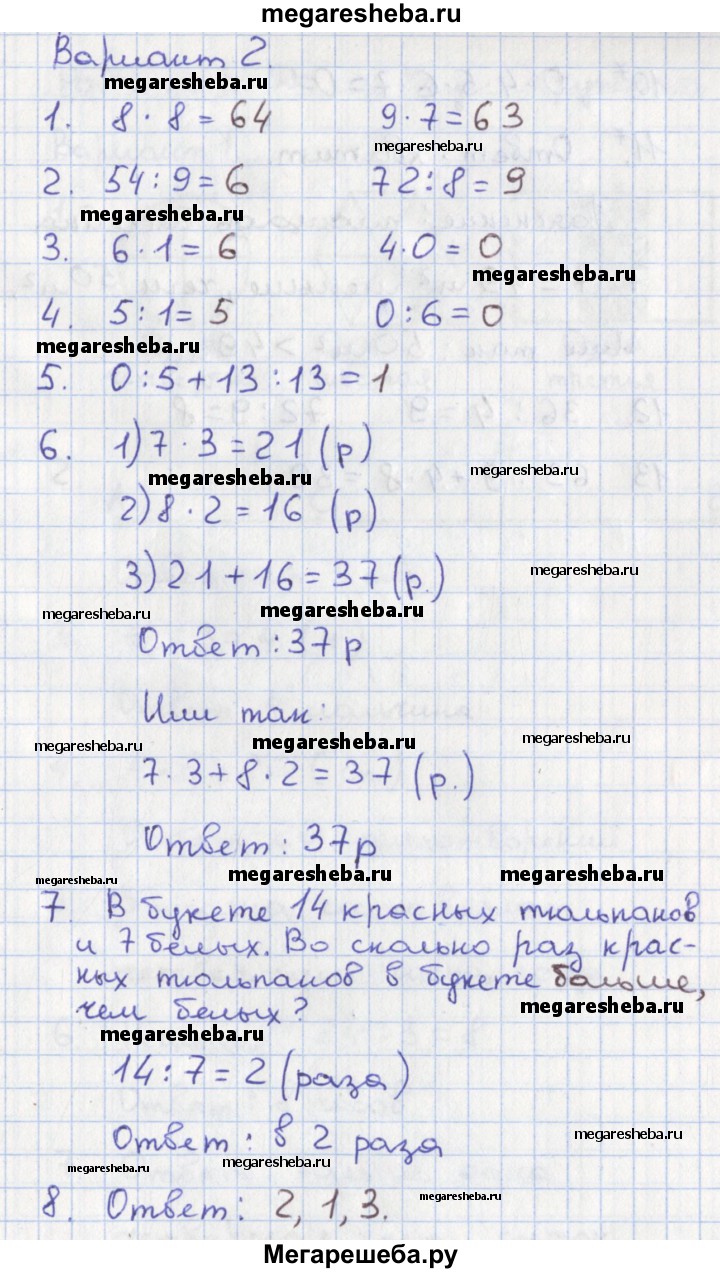 megaresheba.ru
Вариант 2.
megaresheba.ru
1. 8 · 8 = 64 9 · 7 = 63
megaresheba.ru
2. 54 : 9 = 6 72 : 8 = 9
megaresheba.ru
3. 6 · 1 = 6 4 · 0 = 0
megaresheba.ru
4. 5 : 1 = 5 0 : 6 = 0
megaresheba.ru
5. 0 : 5 + 13 : 13 = 1
6. 1) 7 · 3 = 21 (р)
megaresheba.ru megaresheba.ru
2) 8 · 2 = 16 (р)
3) 21 + 16 = 37 (р.)
megaresheba.ru
megaresheba.ru megaresheba.ru
Ответ : 37 р
Или так:
megaresheba.ru megaresheba.ru megaresheba.ru
7 · 3 + 8 · 2 = 37 (р.)
Ответ : 37р
megaresheba.ru megaresheba.ru megaresheba.ru
7. В букете 14 красных тюльпанов
и 7 белых. Во сколько раз крас-
ных тюльпанов в букете больше,
чем белых?
megaresheba.ru
megaresheba.ru
14 : 7 = 2 (раза)
Ответ : в 2 раза
megaresheba.ru
megaresheba.ru megaresheba.ru
8. Ответ : 2, 1, 3.
megaresheba.ru
Мегарешеба.ру